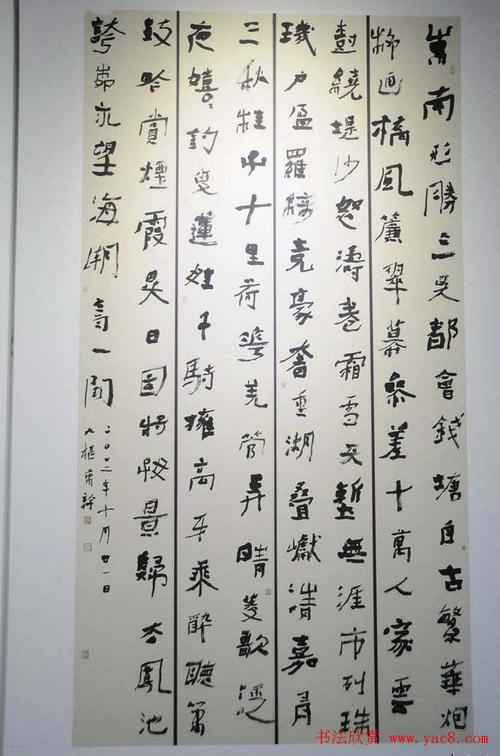 東南形勝三吳都會錢塘自古繁華烟
柳画橋風簾翠幕參差十萬人家雲
樹繞堤沙怒濤卷霜雪天塹無涯市列珠
璣户盈羅綺竞豪奢重湖疊巘清嘉有
三秋桂子十里荷花羌管弄晴菱歌泛
夜嬉嬉釣叟蓮娃千騎擁高牙乘醉聽簫
鼓吟賞煙霞異日圖將好景歸去鳳池
誇柳永望海潮一闋
年十月廿一日
书法欣赏 www.yac8.com